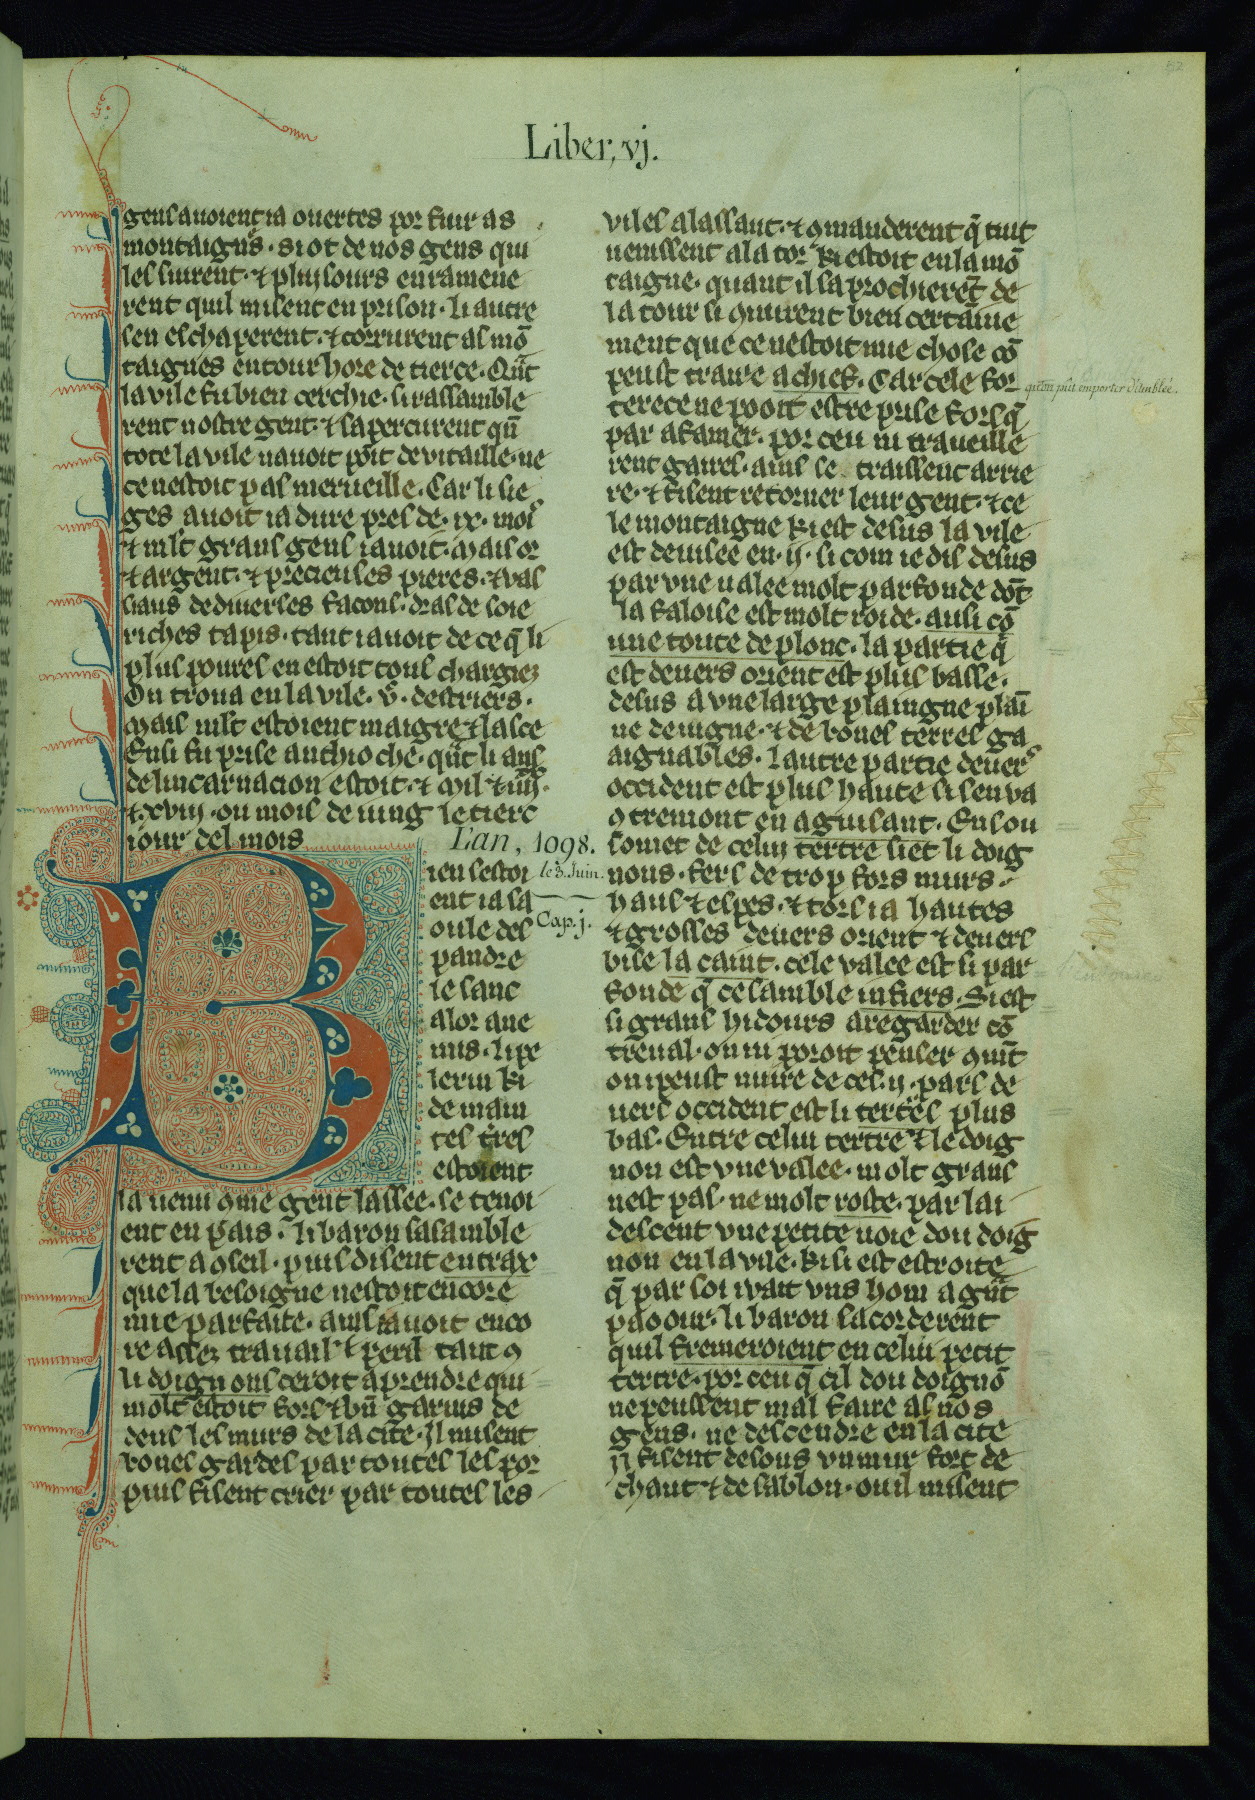 52
Liber, vj.
gens auoient ia ouertes por fuir as
montaignes · si ot de nos gens qui
les siurent · ⁊ plusours en ramene
rent quil misent en prison · li autre
sen eschaperent · ⁊ corrurent as mō
taignes entour hore de tierce · Qūt
la vile fu bien cerchie · si rassamble
rent nostre gent · ⁊ sapercurent qn̄
tote la vile nauoit poīt de vitaille · ne
ce nestoit pas merueille · Car li sie
ges auoit ia dure pres de · ix · mois
⁊ mlt grans gens iauoit · Mais or
⁊ argent · ⁊ precieuses pieres · ⁊ vas
siaus de diuerses facons · dras de soie
riches tapis · tant iauoit de ce q̄ li
plus poures en estoit tous chargiez
On troua en la vile · vͨ · destriers ·
Mais mlt estoient maigre ⁊ lasce
Ensi fu prise anthioche · qūt li ans
de lincarnacion estoit · ⁊ Mil ⁊ iiij ·
⁊ xviij · ou mois de iung le tierc
iour del mois
L'an, 1098.
le 3. Juin.
Cap. j.
Bien sestoi
ent ia sa
oule des
pandre
le sanc
a lor ane
mis · li pe
lerin ki
de main
tes t̄res
estoient
la uenu 9me gent lassee · se tenoi
ent en pais · li baron sasamble
rent a 9seil · puis disent entrax
que la besoigne nestoit encore
mie parfaite · ains iauoit enco
re assez trauail ⁊ peril tant 9
li doignons ceroit a prendre qui
molt estoit fors ⁊ bn̄ garnis de
dens les murs de la cite · Il misent
bones gardes par toutes les por
puis fisent crier par toutes les
viles a lassaut · ⁊ 9manderent q̄ tuit
uenissent a la tor ki estoit en la mō
taigne · quant il saprochierēt de
la tour si 9nurent bien certaine
ment que ce nestoit mie chose cō
peust traire a chief · Car cele for
qu'on pût emporter d'emblée.
terece ne pooit estre prise fors q̄
par afamer · por ceu ni traueille
rent gaires · ains se traissent arrie
re · ⁊ fisent retorner leur gent · ⁊ ce
le montaigne ki est desus la vile
est deuisee en · ij · si com ie dis desus
par vne ualee molt parfonde dōt
la faloise est molt roide · ausi cō
une toute de plonc · la partie q̄
est deuers orient est plus basse ·
desus a vne large plaingne plaī
ne de uigne · ⁊ de bones terres ga
aignables · Lautre partie deuers
occident est plus haute si sen va
9tremont en aguisant · En son
somet de celui tertre siet li doig
nons · fers de trop fors murs ·
haus ⁊ espes · ⁊ tors i a hautes
⁊ grosses deuers orient ⁊ deuers
bise la caint · cele valee est si par
fonde q̄ ce samble infiers · Si est
si grans hidours a regarder cō
treual · on ni poroit penser 9mt̄
on i peust nuire de ces · ij · pars de
uers occident est li tertres plus
bas · Entre celui tertre ⁊ le doig
non est vne vallee · molt grans
nest pas · ne molt roste · par lai
descent vne petite uoie dou doig
non en la vile · ki si est estroite
q̄ par soi i vait vns hom a gn̄t
paoour · li baron sacorderent
quil fremeroient en celui petit
tertre · por ceu q̄ cil dou doignō
ne peussent mal faire as nos
gens · ne descendre en la cite
Il fisent desous vn mur fort de
chaut ⁊ de sablon · ou il misent